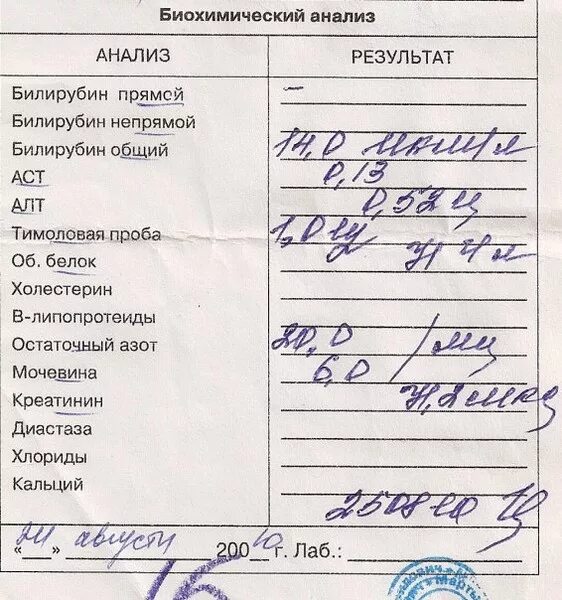 Биохимический анализ
АНАЛИЗ РЕЗУЛЬТАТ
Билирубин прямой –
Билирубин непрямой
Билирубин общий 14,0
АСТ 0,13
АЛТ 0,52
Тимоловая проба 1,0
Об. белок
Холестерин
В-липопротеиды
Остаточный азот 20,0
Мочевина 6,0
Креатинин
Диастаза
Хлориды
Кальций
августа 200 г. Лаб.: